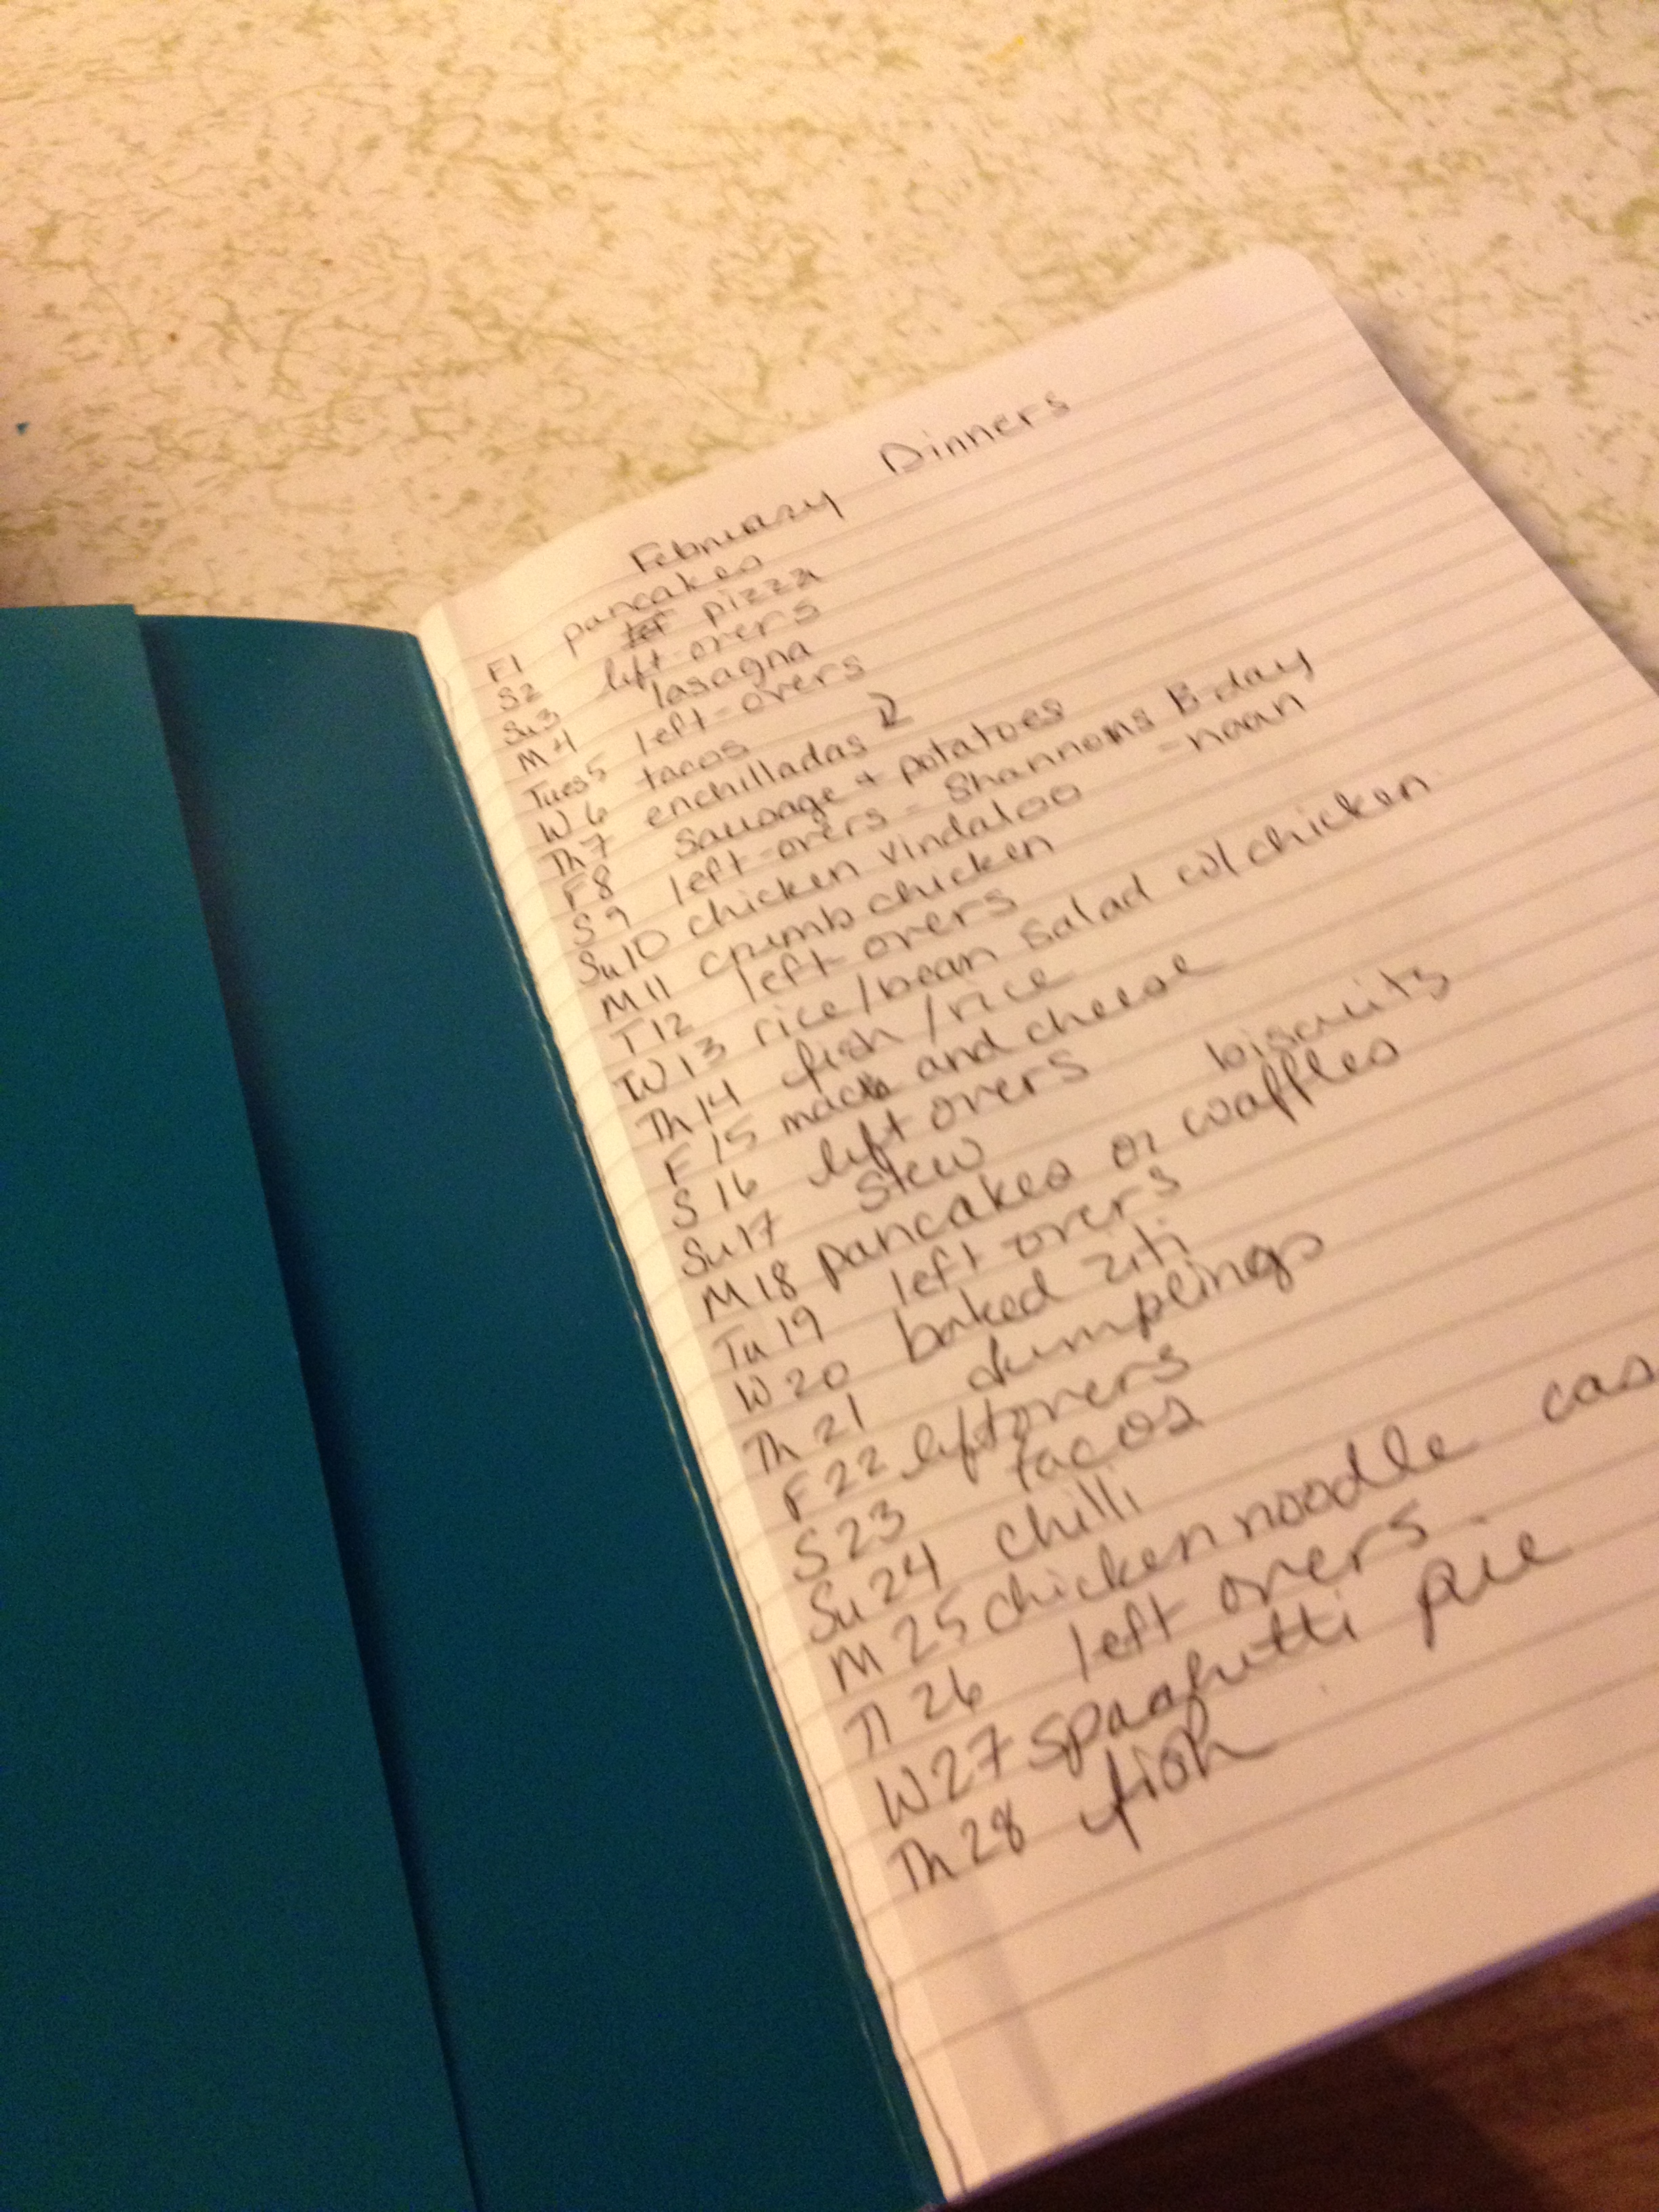 February Dinners
F1 pancakes
S2 pizza
Su3 left-overs
M4 lasagna
Tues5 left-overs
W6 tacos
Th7 enchilladas
F8 sausage + potatoes
S9 left-overs - Shannons B-day
Su10 chicken vindaloo - naan
M11 crumb chicken
T12 left overs
W13 rice/bean salad w/chicken
Th14 fish/rice
F15 mac and cheese
S16 left overs
Su17 stew biscuits
M18 pancakes or waffles
Tu19 left overs
W20 baked ziti
Th21 dumplings
F22 leftovers
S23 tacos
Su24 chilli
M25 chicken noodle cas
T26 left overs
W27 spaghutti pie
Th28 fish